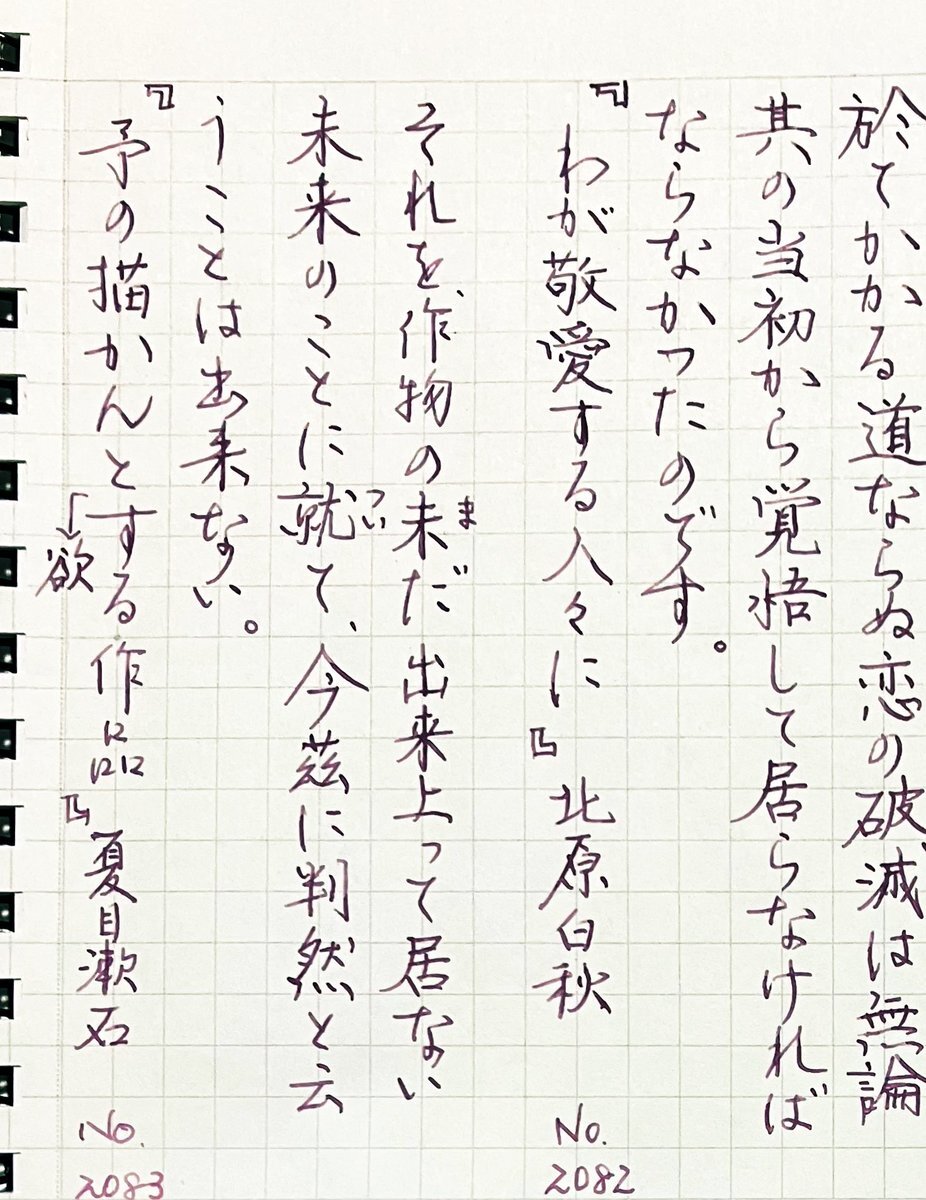 於てかかる道ならぬ恋の破滅は無論
其の当初から覚悟して居らなければ
ならなかったのです。
『わが敬愛する人々に』北原白秋 No. 2082
それを、作物の未だ出来上って居ない
ま
未来のことに就て、今茲に判然と云
つい
うことは出来ない。
『予の描かんとする作品』夏目漱石 No. 2083
欲